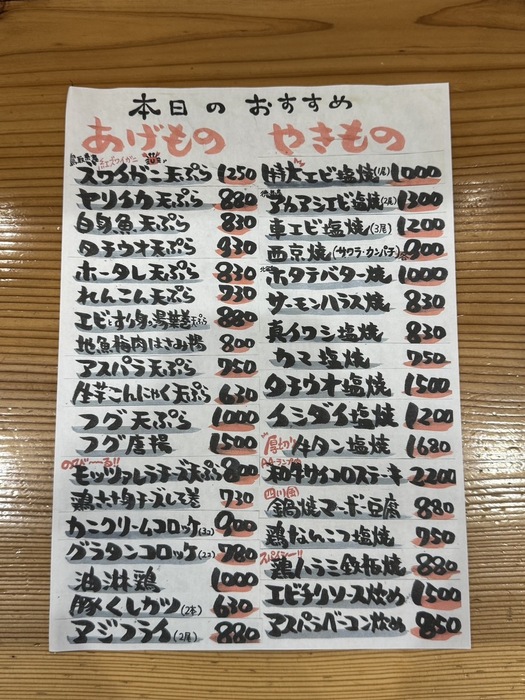 本日のおすすめ
あげもの
鳥取県産 紅ズワイガニ
ズワイがに天ぷら 1250
ヤリイカ天ぷら 880
白身魚天ぷら 830
タチウオ天ぷら 930
ホータレ天ぷら 830
れんこん天ぷら 730
エビとすり身の湯葉巻天ぷら 880
地魚梅肉はさみ揚 800
アスパラ天ぷら 750
生芋こんにゃく天ぷら 630
フグ天ぷら 1000
フグ唐揚 1500
のび〜る!!
モッツァレラチーズ天ぷら 800
鶏ささ身チーズしそ巻 730
カニクリームコロッケ(2コ) 900
グラタンコロッケ(2コ) 780
油淋鶏 1000
豚くしカツ(2本) 630
アジフライ(2尾) 880
やきもの
特大エビ塩焼(1尾) 1000
アカアシエビ塩焼(2尾) 1300
車エビ塩焼(3尾) 1200
西京焼(サワラ・カンパチ) 900
ホタテバター焼 1000
サーモンハラス焼 830
真イワシ塩焼 830
カマ塩焼 750
タチウオ塩焼 1500
イシダイ塩焼 1200
厚切り 牛タン塩焼 1680
和牛サイコロステーキ 2200
四川(風)
鍋焼マーボ豆腐 880
鶏なんこつ塩焼 750
スパイシー!!
鶏ハラミ鉄板焼 880
エビチリソース炒め 1500
アスパラベーコン炒め 850